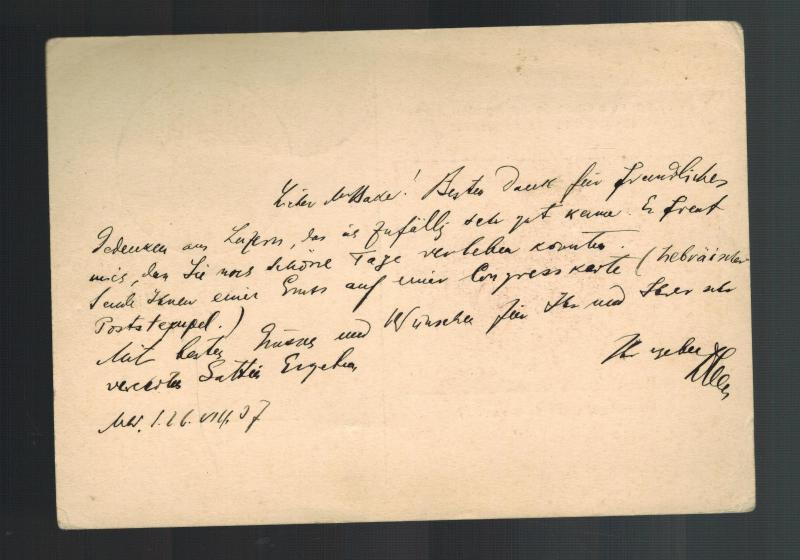 Lieber ! Besten Dank für freundliches
Gedenken aus Luzern, das ich zufällig sehr gut kenne. Es freut
mich, dass Sie noch schöne Tage verleben konnten.
Sende Ihnen einen Gruss auf einer Congresskarte (hebräischer
Poststempel.)
Mit besten Grüssen und Wünschen für Ihr und Ihrer sehr
verehrten Gattin Ergehen
Ihr ergebener